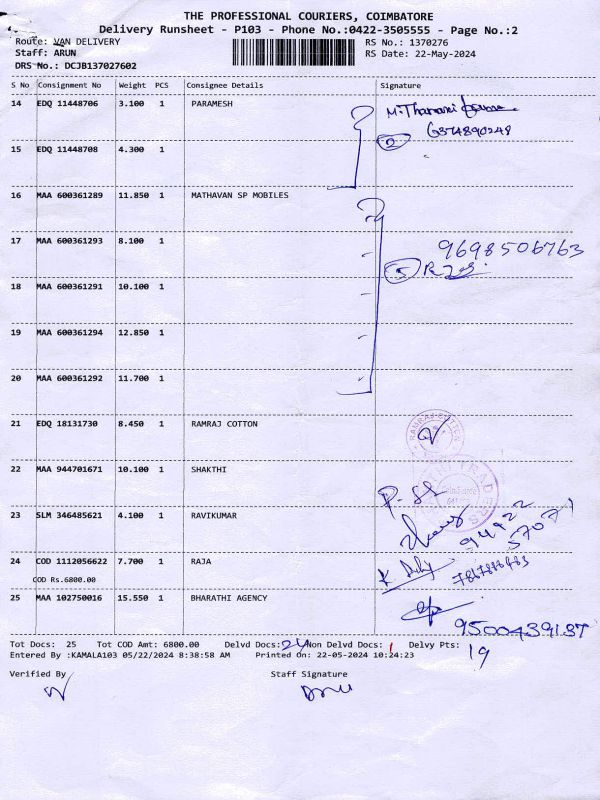 THE PROFESSIONAL COURIERS, COIMBATORE
Delivery Runsheet - P103 - Phone No.:0422-3505555 - Page No.:2
Route: VAN DELIVERY RS No.: 1370276
Staff: ARUN RS Date: 22-May-2024
DRS No.: DCJB137027602
S No Consignment No Weight PCS Consignee Details Signature
14 EDQ 11448706 3.100 1 PARAMESH
6374890248
2
15 EDQ 11448708 4.300 1
16 MAA 600361289 11.850 1 MATHAVAN SP MOBILES
17 MAA 600361293 8.100 1 9698506763
5
18 MAA 600361291 10.100 1
19 MAA 600361294 12.850 1
20 MAA 600361292 11.700 1
21 EDQ 18131730 8.450 1 RAMRAJ COTTON
RAMRAJ COTTON
22 MAA 944701671 10.100 1 SHAKTHI
TRADERS
23 SLM 346485621 4.100 1 RAVIKUMAR
24 COD 1112056622 7.700 1 RAJA
COD Rs.6800.00
25 MAA 102750016 15.550 1 BHARATHI AGENCY
9500439137
Tot Docs: 25 Tot COD Amt: 6800.00 Delvd Docs: 24 Non Delvd Docs: 1 Delvy Pts: 19
Entered By :KAMALA103 05/22/2024 8:38:58 AM Printed On: 22-05-2024 10:24:23
Verified By Staff Signature